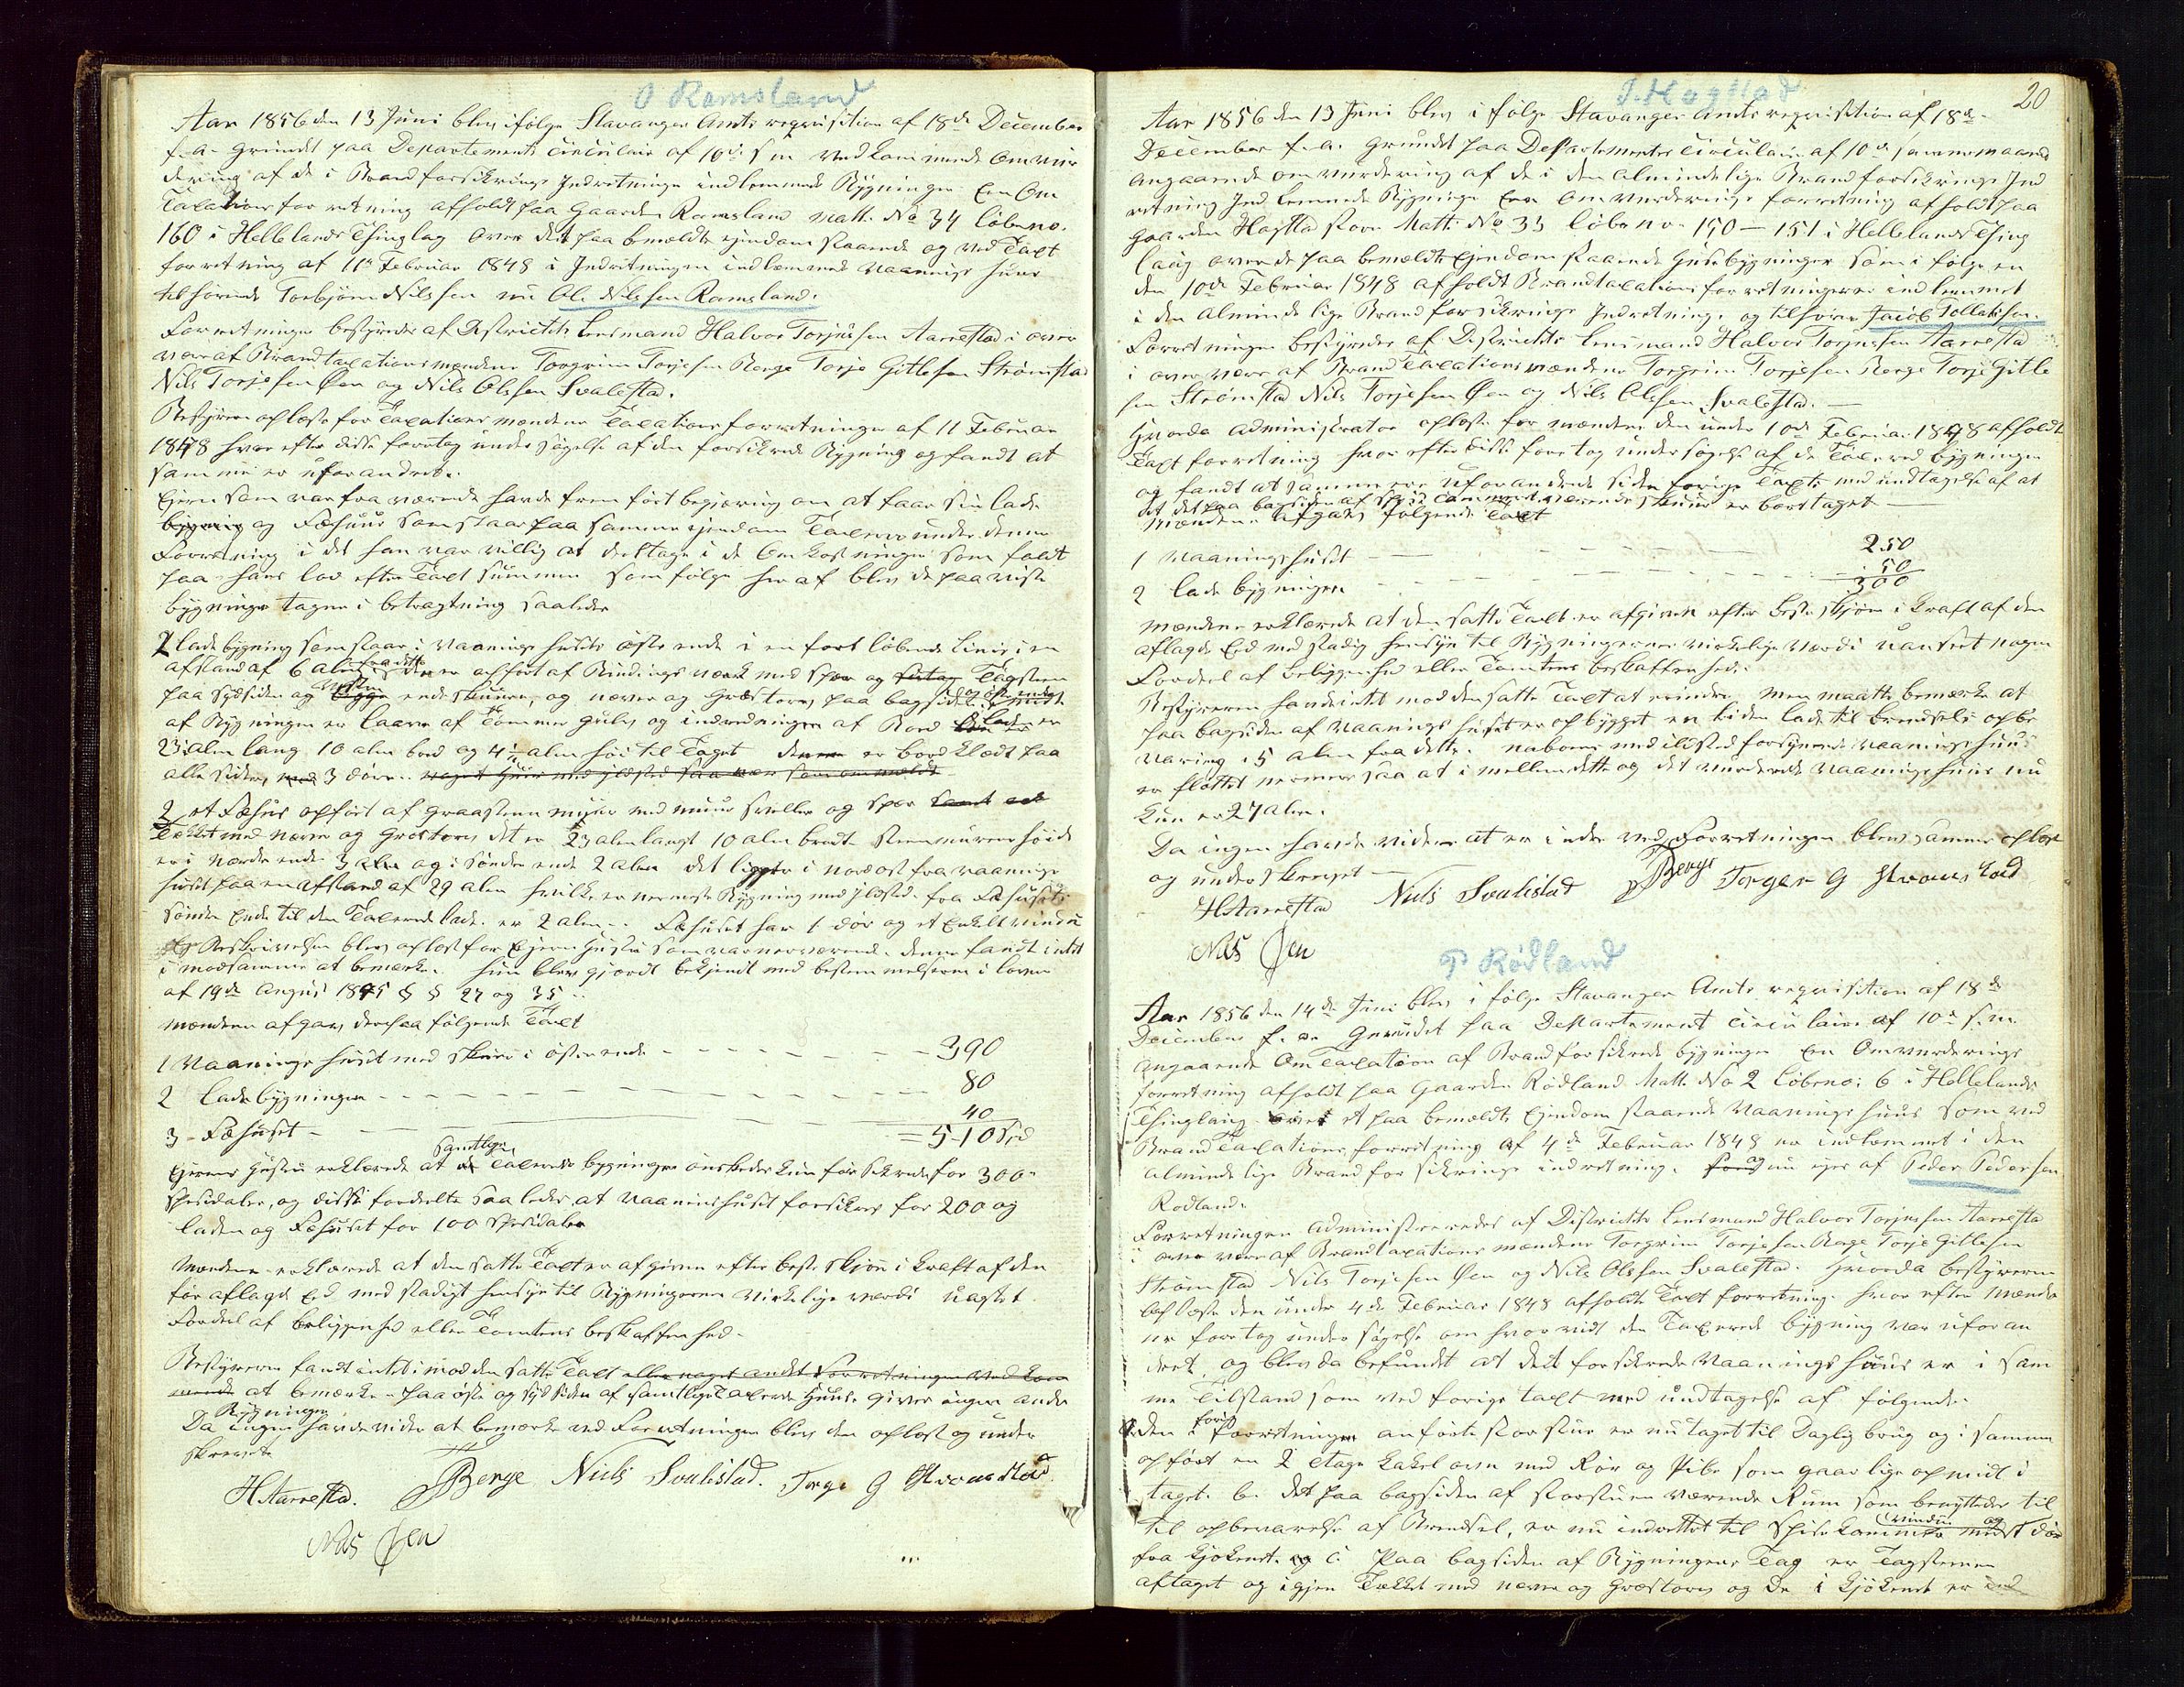 O Ramsland
Aar 1856 den 13 Juni blev ifølge Stavanger Amts reqvisition af 18de December
f. a. grundet paa Departements Circulair af 10de s m vedkommende Omvur
dering af de i Brandforsikrings Indretningen indlemmede Bygninger En Om
Taxations forretning afholdt paa Gaarden Ramsland Matt: No 34 løbeno.
160 i Hellelands Thinglag over det paa bemældte ejendom staaende og ved Taxt
forretning af 11te Februar 1848 i Indretningen indlemmed Vaanings huus
tilhørende Torbjørn Nilssen nu Ole Nilssen Ramsland.
Forretningen bestyredes af Districtets Lensmand Halvor Torjussen Aarrestad i over
vær af Brandtaxationsmændene Torgrim Torjesen Berge Torje Gitlesen Strømstad
Nils Torjesen Øen og Nils Olssen Svalestad.
Bestyreren oplæste for Taxations mændene Taxationsforretningen af 11 Februar
1848 hvorefter disse foretog undersøgelse af den forsikrede Bygning og fandt at
samme er uforandret.
Ejeren som var fraværende havde fremført begjæring om at faae sin lade
bygning og Fæhuus som staar paa samme ejendom Taxeret under denne
Forretning i det han var villig at deeltage i de Omkostninger som faldt
paa hans lod efter Taxt summen som følge heraf blev de paaviste
bygninger tagne i betragtning saaledes
1 ladebygning som staar i Vaanings husets østre ende i en fort løbende Linie i en
afstand af 6 alen fra dette den er opført af Bindings værk med spær og Tagsteen
paa sydsiden og vestre ende skuuren, og næver og Græstorv paa bagsiden og østre ende midt
af Bygningen er laave af Tømmer gulv og indredningen af Bord laden er
23 alen lang 10 alen bred og 4½ alen høi til Taget den er bord klædt paa
alle sider, med 3 døre.
2 et Fæhus opført af graasteen muur med muur sviller og spær
Tækket med næver og Græstorv, det er 23 alen langt 10 alen bredt steenmurens høide
er i nordre ende 3 alen og i søndre ende 2 alen det ligger i nordost fra vaanings
huset paa en afstand af 29 alen hvilke er nærmeste Bygning med ildsted. fra Fæhusets
søndre Ende til den Taxerede lade er 2 alen. Fæhuset har 1 dør og et Enkelt vindu
Beskrivelsen blev oplæst for Ejerens Hustru som var nærværende. denne fandt intet
imod samme at bemærke. hun blev gjordt bekjendt med bestemmelserne i loven
af 19de August 1845 § § 27 og 35
Mændene afgav derpaa følgende Taxt
1 Vaanings huset med skuur i østre ende - - - - - - - 390
2 ladebygningen - - - - - - - - - - 80
3 - Fæhuset - 40
= 510 Spd
Ejerens Hustru erklærede at samtlige Taxerede bygninger ønskedes kun forsikrede for 300
Spesidaler, og disse fordeelte saaledes, at Vaaningshuset forsikres for 200 og
laden og Fæhuset for 100 Spesidaler
Mændene erklærede at den satte Taxt er afgiven efter beste skjøn i kraft af den
før aflagde Eed med stadigt hensyn til Bygningernes virkelige værdi uagtet
Fordeel af beliggenhed eller Tomtens beskaffenhed.
Bestyreren fandt intet imod den satte Taxt eller noget andet Forretningen vedkom
mende at bemærke. paa øst og sydsiden af samtlige Taxerede Huuse gives ingen andre
Bygninger
Da Ingen havde videre at bemærke ved Forretningen blev den oplæst og under
skrevet
HAarrestad. Berge Niels Svalistad. Torge G Strømstad
Nils Øen
20
J. Hogstad
Aar 1856 den 13 Juni blev i følge Stavanger Amts reqvisition af 18de
December f. a. grundet paa Departementets Circulair af 10de samme maaned
angaaende omvurdering af de i den Almindelige Brandforsikrings Ind
retning Indlemmede Bygninger En Omvurderings forretning afholdt paa
Gaarden Hogstad store Matt: No 33 løbeno. 150 — 151 i Hellelands Thing
laug over de paa bemældte Ejendom staaende Huusbygninger som i følge en
den 10de Februar 1848 afholdt Brandtaxationsforretning er indlemmet
i den Almindelige Brandforsikrings Indretning, og tilhører Jacob Tollaksen.
Forretningen bestyredes af Districtets Lensmand Halvor Torjussen Aarrestad
i overvær af Brand Taxationsmændene Torgrim Torjesen Berge Torje Gitle
sen Strømstad Nils Torjesen Øen og Nils Olssen Svalestad. —
Hvorda Administrator oplæste for mændene den under 10de Februar 1848 afholdt
Taxt forretning hvorefter disse foretog undersøgelse af de Taxerede bygninger
og fandt at samme var uforandrede siden forrige Taxt med undtagelse af at
det paa bagsiden af værende skuur er borttaget —
Mændene afgav følgende Taxt
1 Vaaningshuset - - - - - - 250
2 ladebygningen - - - - - - 50
300
Mændene erklærede at den satte Taxt er afgiven efter beste skjøn i kraft af den
aflagde Eed med stadig hensyn til Bygningernes virkelige værdi uanseet nogen
Fordeel af beliggenhed eller Tomtens beskaffenhed.
Bestyreren havde intet mod den satte Taxt at erindre, men maatte bemærke at
paa bagsiden af Vaanings huset er opbygget en liden lade til brændsels opbe
varing i 5 alen fra dette. naboens med ildsted forsynede Vaaningshuus
er flottet nærmere saa at i mellem dette og det vurderede Vaaningshuus nu
kun er 27 alen.
Da ingen havde videre at erindre ved Forretningen blev samme oplæst
og underskrevet —
HAarrestad Niels Svalistad Berge Torger G Strømstad
Nils Øen
P Rødland
Aar 1856 den 14de Juni blev i følge Stavanger Amts reqvisition af 18de
December f. a. Grundet paa Departement Circulaire af 10de s. m.
angaaende OmTaxation af Brandforsikrede bygninger En Omvurderings
forretning afholdt paa Gaarden Rødland Matt: No 2 løbeno: 6 i Hellelands
Thinglaug over et paa bemældte Ejendom staaende Vaanings huus som ved
Brand Taxations forretning af 4de Februar 1848 er indlemmet i den
Almindelige Brandforsikrings indretning. og nu ejes af Peder Pedersen
Rødland.
Forretningen Administreredes af Districtets Lensmand Halvor Torjussen Aarrestad
i overvær af Brandtaxations mændene Torgrim Torjesen Berge Torje Gitlesen
Strømstad Nils Torjesen Øen og Nils Olssen Svalestad. Hvorda bestyreren
oplæste den under 4de Februar 1848 afholdte Taxt forretning. hvor efter mænde
ne foretog undersøgelse om hvorvidt den Taxerede bygning var uforan
dret, og blev da befundet at det forsikrede Vaaningshuus er i sam
me Tilstand som ved forrige taxt med undtagelse af følgende.
den i forrige forretningen anførte storstue er nu taget til Daglig brug og i samme
opført en 2 etage kakelovn med Rør og Pibe som gaar lige op midt i
taget. b. det paa bagsiden af storstuen værende Rum som benyttedes til
til opbevarelse af Brændsel, er nu indrettet til Spisekammer vindu og dør
fra kjøkenet. og C. Paa bagsiden af Bygningens Tag er Tagstenen
aftaget og igjen Tækket med næver og Græstorv og De i kjøkenet er